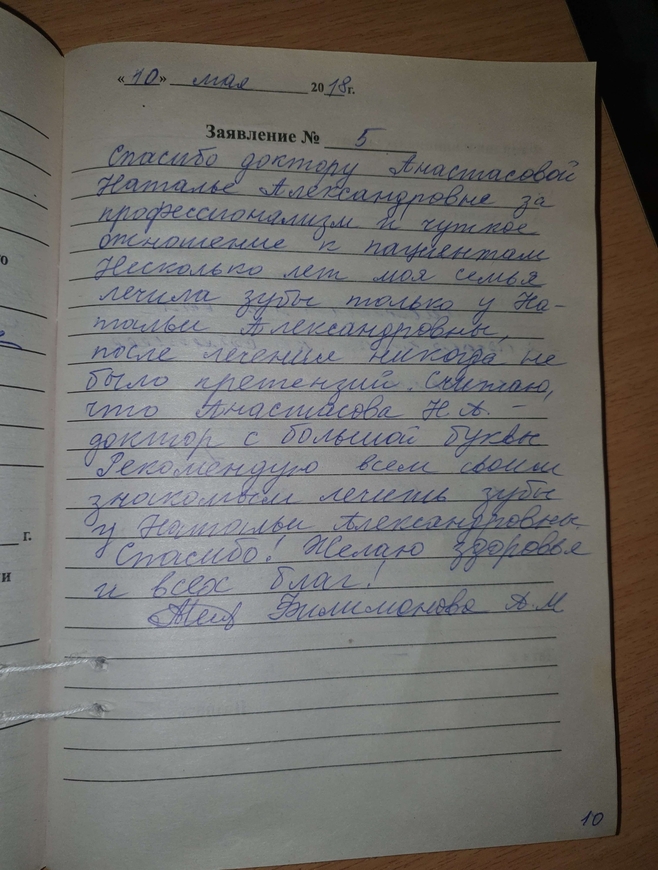 «10» мая 2018г.
Заявление № 5
Спасибо доктору Анастасовой
Наталье Александровне за
профессионализм и чуткое
отношение к пациентам
Несколько лет моя семья
лечила зубы только у На-
тальи Александровны,
после лечения никогда не
было претензий. Считаю,
что Анастасова Н.А. -
доктор с большой буквы
Рекомендую всем своим
знакомым лечить зубы
у Натальи Александровны.
Спасибо! Желаю здоровья
и всех благ!
Филимонова А.М
г.
10